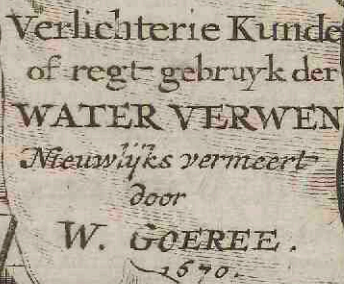 Verlichterie Kunde
of regt gebruyk der
WATER VERWEN
Nieuwlijks vermeert
door
W. GOEREE.
1670.